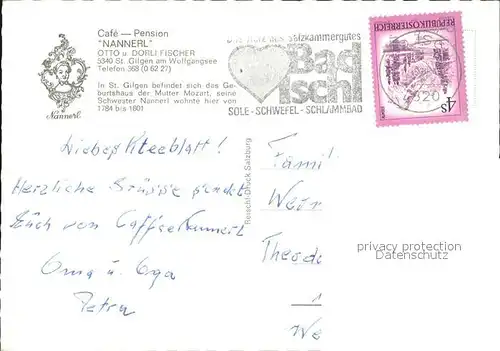 Café — Pension
"NANNERL"
OTTO u DORLI FISCHER
5340 St. Gilgen am Wolfgangsee
Telefon 368 (0 62 27)
In St. Gilgen befindet sich das Ge-
burtshaus der Mutter Mozart, seine
Schwester Nannerl wohnte hier von
1784 bis 1801
Nannerl
Salzkammergutes
Bad
Ischl
SOLE-SCHWEFEL-SCHLAMMBAD
REPUBLIK ÖSTERREICH
S4
4820
Reischl-Druck Salzburg
Liebes Kleeblatt!
Herzliche Grüsse sendet
Euch von Caffee Nannerl
Oma u. Opa
Petra
Famil
Theod
We
privacy protection
Datenschutz